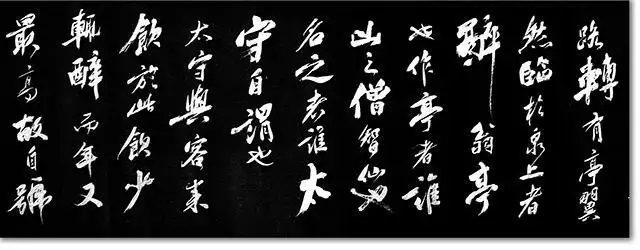 路轉有亭翼
然臨於泉上者
醉翁亭
也作亭者誰
山之僧智仙也
名之者誰太
守自謂也
太守與客来
飲於此飲少
輒醉而年又
最高故自號